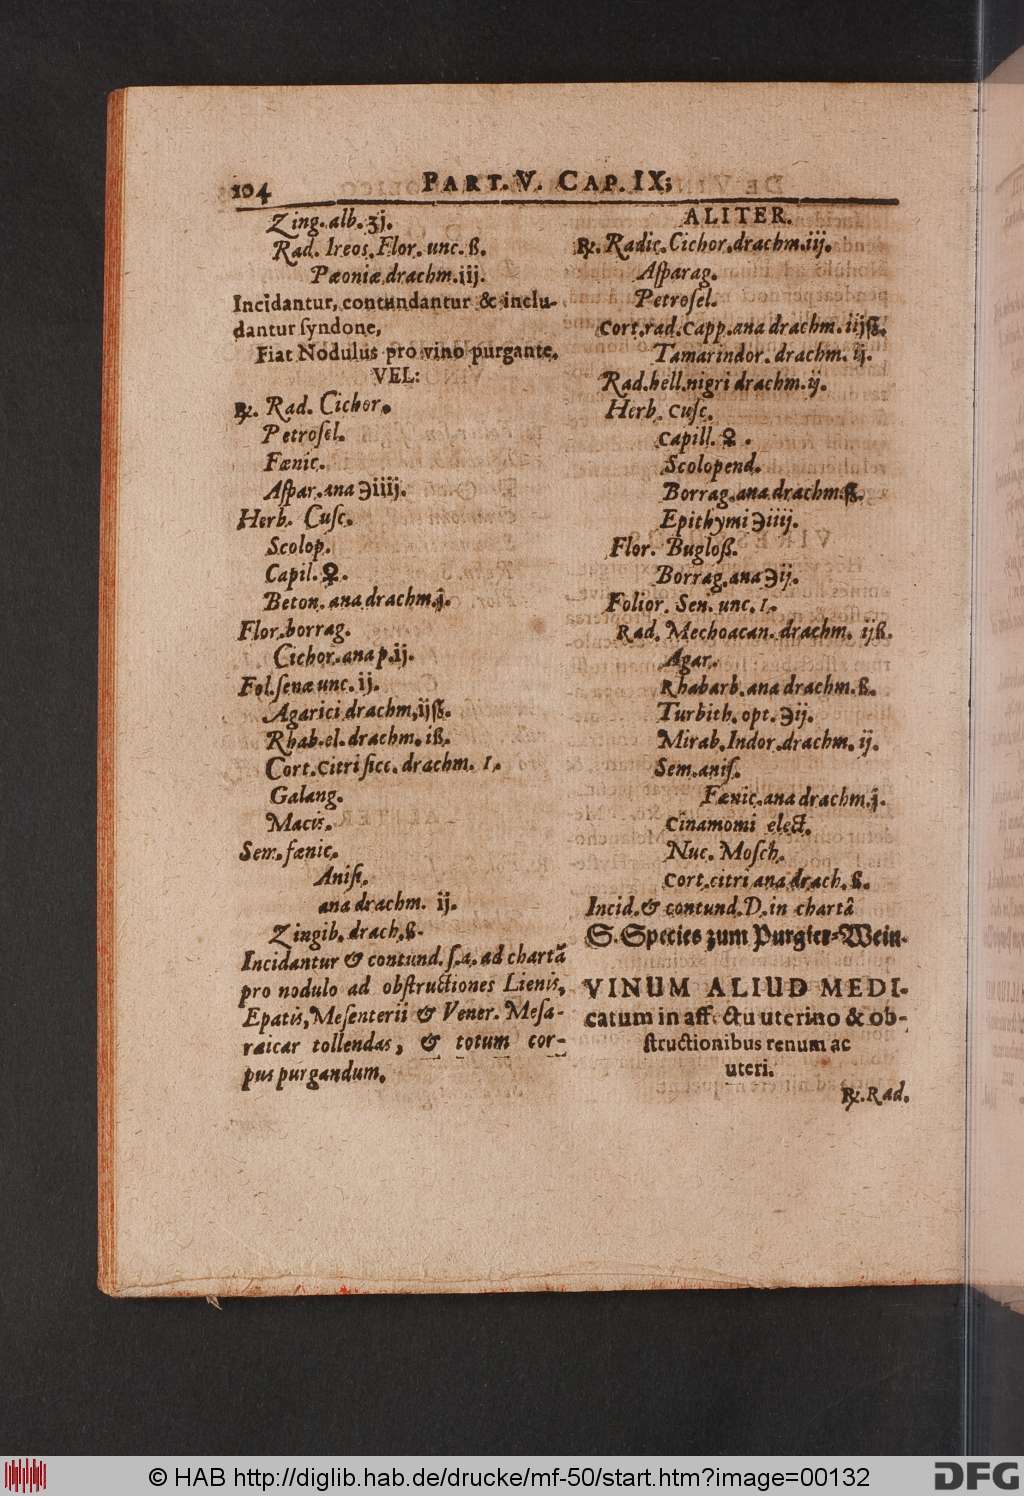 104
PART. V. CAP. IX;
Zing. alb. ʒj.
Rad. Ireos. Flor. unc. ß.
Pæoniæ drachm. iij.
Incidantur, contundantur & inclu-
dantur ſyndone,
Fiat Nodulus pro vino purgante.
VEL:
℞. Rad. Cichor.
Petroſel.
Fœnic.
Aſpar. ana ℈iiij.
Herb. Cuſc.
Scolop.
Capil. ♀.
Beton. ana drachm. j.
Flor. borrag.
Cichor. ana p. ij.
Fol. ſenæ unc. ij.
Agarici drachm, ijß.
Rhab. el. drachm. iß.
Cort. citri ſicc. drachm. I.
Galang.
Macis.
Sem. fœnic.
Aniſi.
ana drachm. ij.
Zingib. drach. ß.
Incidantur & contund. ſ. a. ad chartã
pro nodulo ad obſtructiones Lienis,
Epatis, Meſenterii & Vener. Meſa-
raicar tollendas, & totum cor-
pus purgandum.
ALITER.
℞. Radic. Cichor. drachm. iij.
Aſparag.
Petroſel.
Cort. rad. Capp. ana drachm. iijß.
Tamarindor. drachm. ij.
Rad. hell. nigri drachm. ij.
Herb. Cuſc.
Capill. ♀.
Scolopend.
Borrag. ana drachm. ß.
Epithymi ℈iiij.
Flor. Bugloß.
Borrag. ana ℈ij.
Folior. Sen. unc. I.
Rad. Mechoacan. drachm. ijß.
Agar.
Rhabarb. ana drachm. ß.
Turbith. opt. ℈ij.
Mirab. Indor. drachm. ij.
Sem. aniſ.
Fœnic. ana drachm. j.
Cinamomi elect.
Nuc. Moſch.
Cort. citri ana drach. ß.
Incid. & contund. D. in chartâ
S. Species zum Purgier-Wein.
VINUM ALIUD MEDI-
catum in affectu uterino & ob-
ſtructionibus renum ac
uteri.
℞. Rad.
© HAB http://diglib.hab.de/drucke/mf-50/start.htm?image=00132
DFG